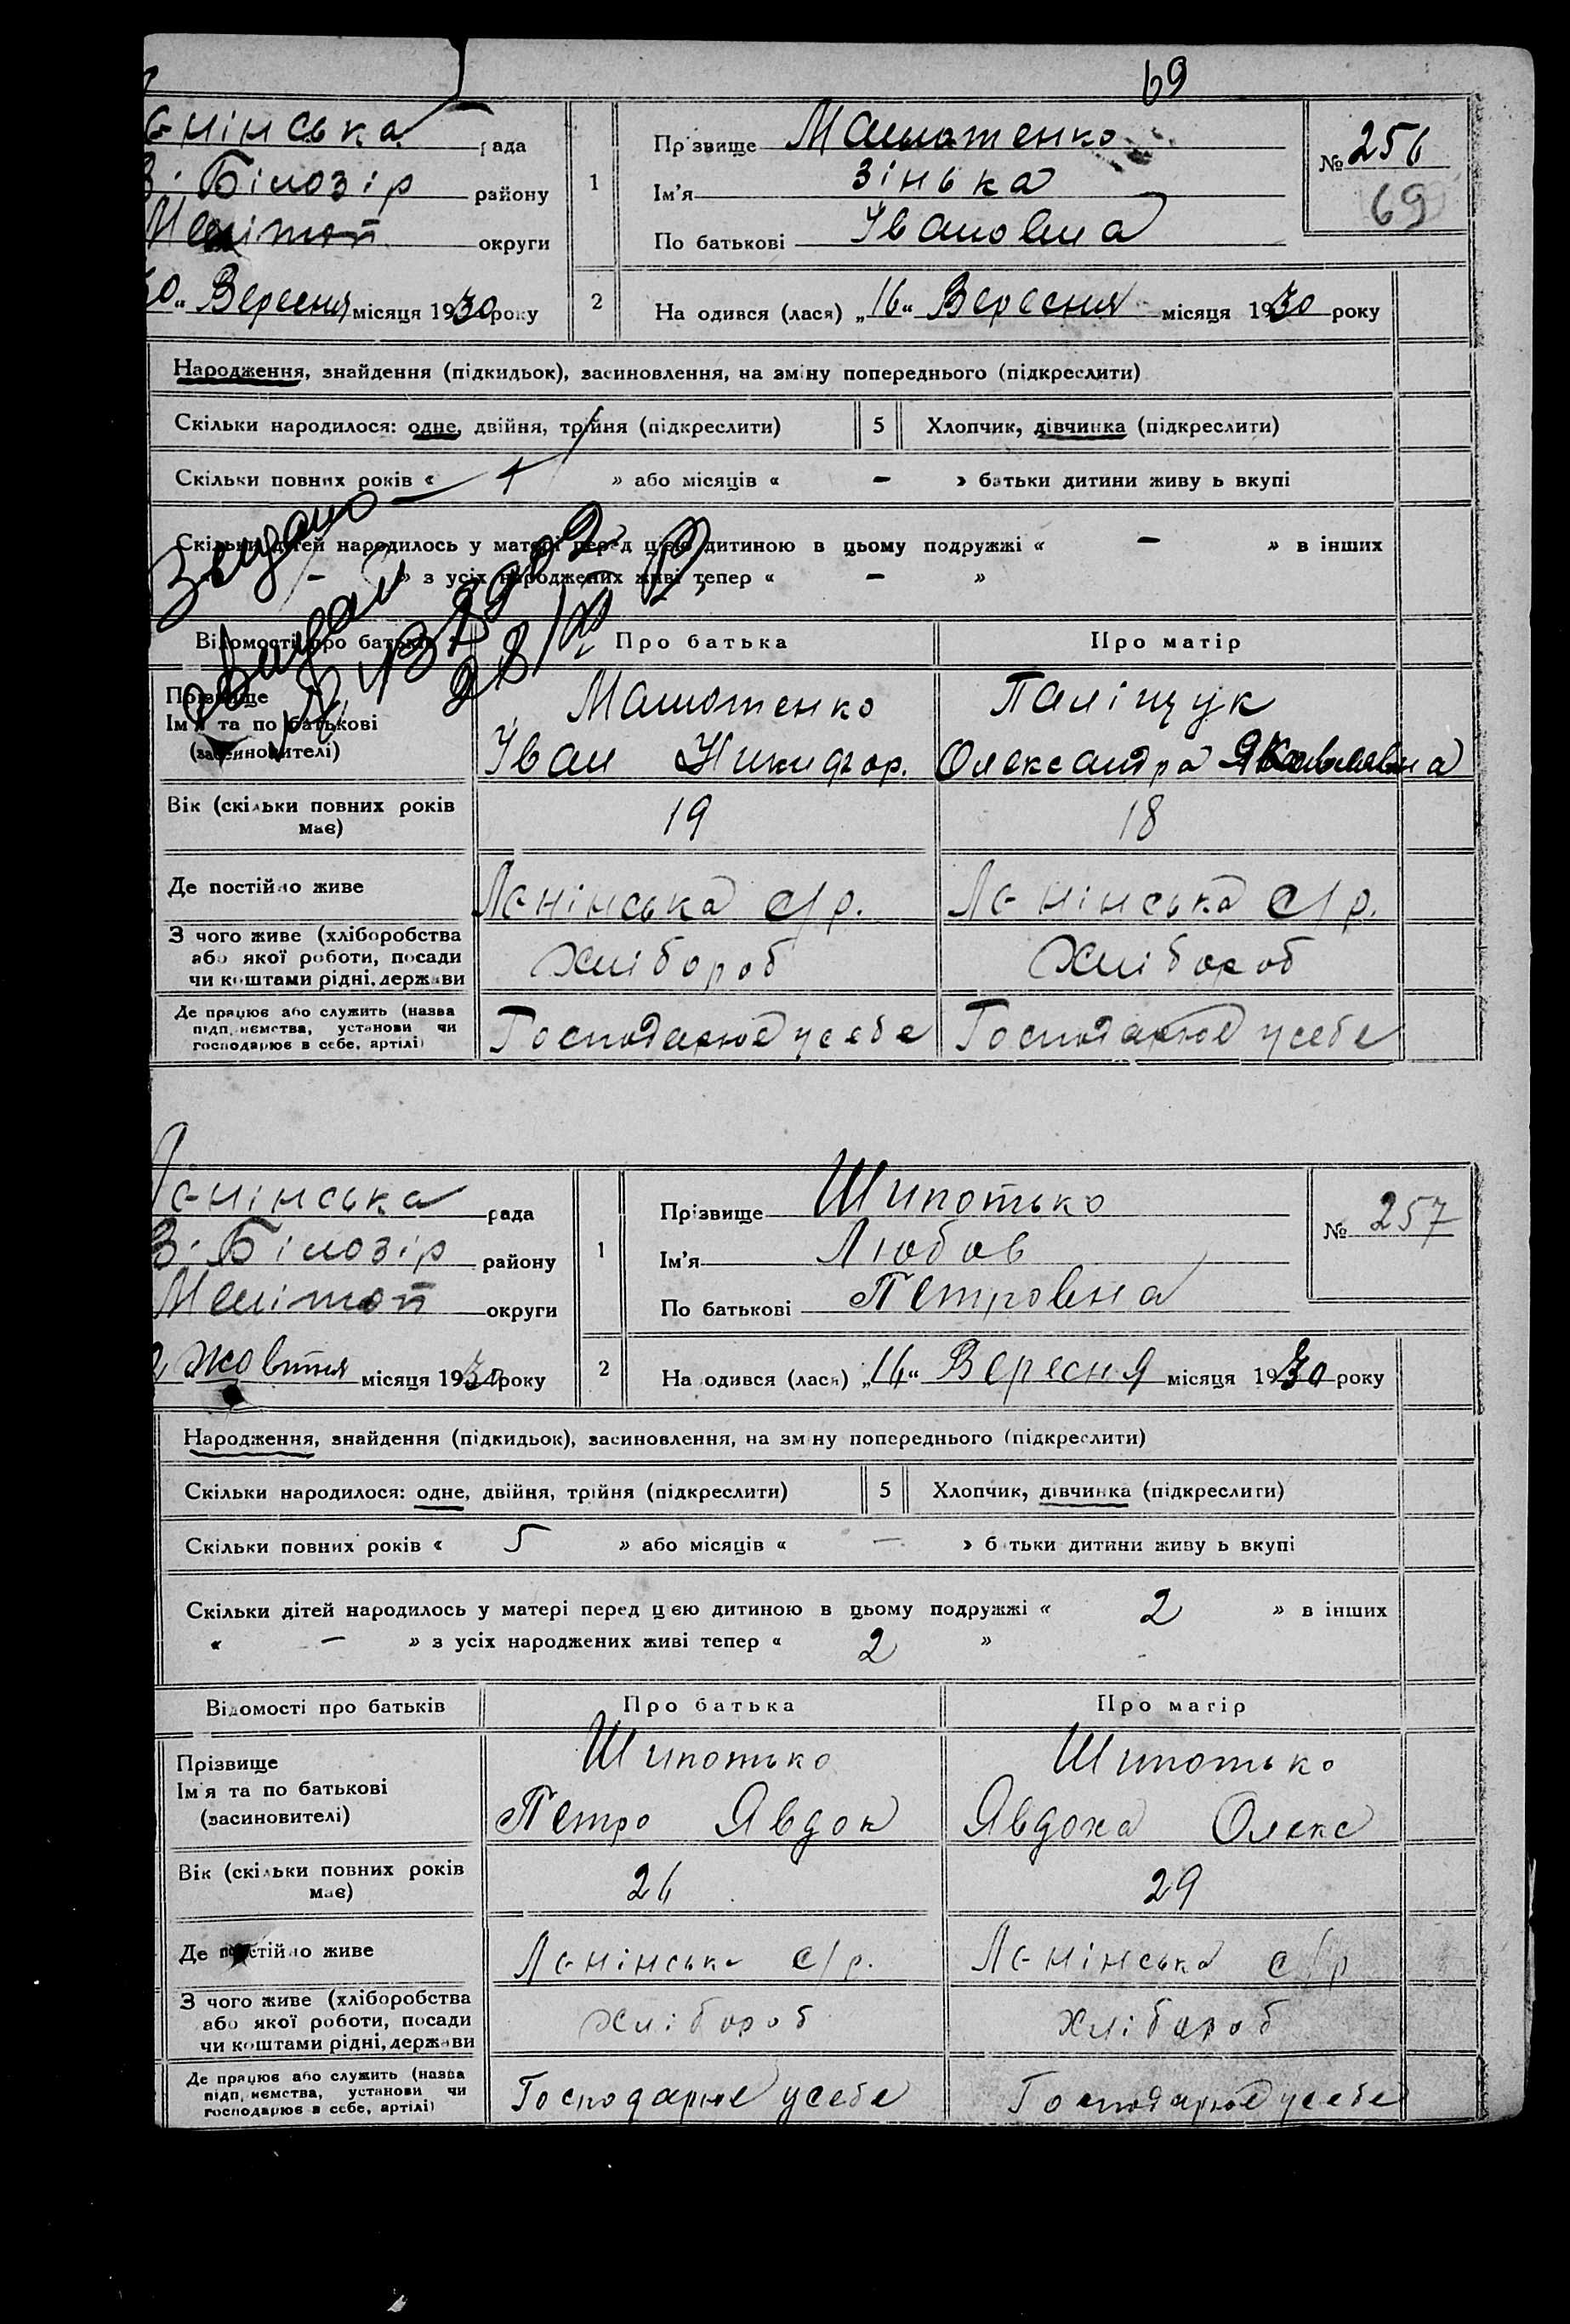 69
єнінська рада
В. Білозір району
Мелітоп округи
30 „ Вересня місяця 1930 року
1
Прізвище Малютенко
Ім'я Зінька
По батькові Івановна
№ 256
69
2
На одився (лася) „16“ Вересня місяця 1930 року
Народження, знайдення (підкидьок), засиновлення, на зміну попереднього (підкреслити)
Скільки народилося: одне, двійня, трійня (підкреслити) 5 Хлопчик, дівчинка (підкреслити)
Скільки повних років « 1 » або місяців « – » батьки дитини живу ь вкупі
Скільки дітей народилось у матері перед цією дитиною в цьому подружжі « – » в інших
– » з усіх народжених живі тепер « – »
Відомості про батьків Про батька Про матір
Прізвище
Ім'я та по батькові
(засиновителі)
Малютенко Паліщук
Іван Никифор. Олександра Яковлевна
Вік (скільки повних років має) 19 18
Де постійно живе Лєнінська с/р. Лєнінська с/р.
З чого живе (хліборобства
або якої роботи, посади
чи коштами рідні, держави
Хлібороб Хлібороб
Де працює або служить (назва
підп, иємства, установи чи
господарює в себе, артілі)
Господарює у себе Господарює у себе
Лєнінська рада
В. Білозір району
Мелітоп округи
Жовтня місяця 1930 року
1
Прізвище Шипотько
Ім'я Любов
По батькові Петровна
№ 257
2
На одився (лася) „14“ Вересня місяця 1930 року
Народження, знайдення (підкидьок), засиновлення, на зм ну попереднього (підкреслити)
Скільки народилося: одне, двійня, трійня (підкреслити) 5 Хлопчик, дівчинка (підкреслити)
Скільки повних років « 5 » або місяців « – » б тьки дитини живу ь вкупі
Скільки дітей народилось у матері перед цією дитиною в цьому подружжі « 2 » в інших
« – » з усіх народжених живі тепер « 2 »
Відомості про батьків Про батька Про матір
Прізвище
Ім'я та по батькові
(засиновителі)
Шипотько Шипотько
Петро Явдок Явдоха Олекс
Вік (скільки повних років має) 26 29
Де постійно живе Лєнінська с/р. Лєнінська с/р
З чого живе (хліборобства
або якої роботи, посади
чи коштами рідні, держави
Хлібороб Хлібороб
Де працює або служить (назва
підп, иємства, установи чи
господарює в себе, артілі)
Господарює у себе Господарює у себе